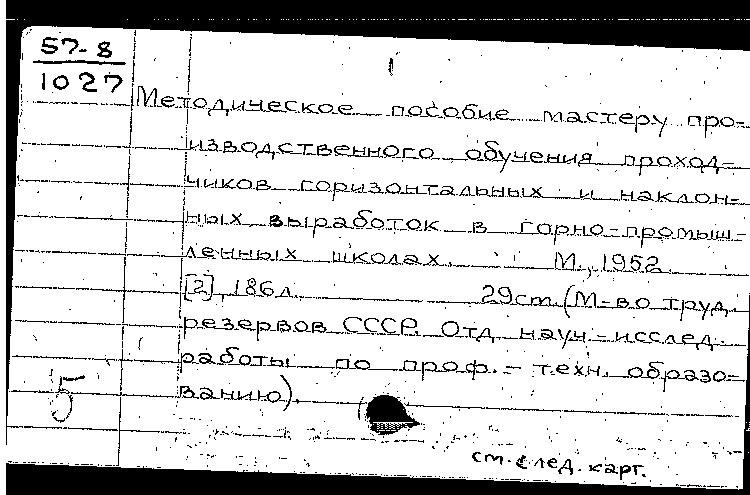 57-8
1027
Методическое пособие мастеру про-
изводственного обучения проход-
чиков горизонтальных и наклон-
ных выработок в горно-промыш-
ленных школах. М., 1952.
[2], 186 л. 29 cm. (М-во труд.
резервов СССР. Отд науч-исслед.
работы по проф.-техн. образо-
ванию).
5
см. след. карт.